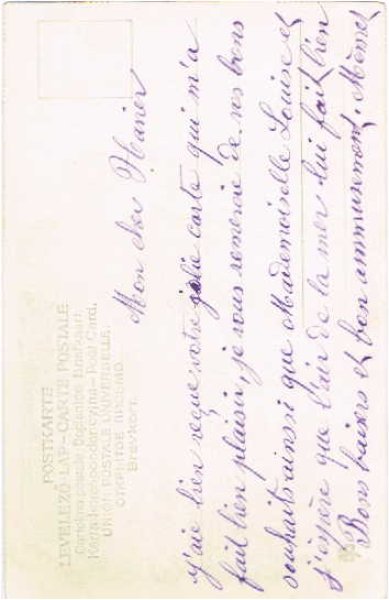 POSTKARTE
LEVELEZŐ-LAP – CARTE POSTALE
Cartolina postale Dopisnice Dopisnica
Karta korespondencyjna – Post Card.
UNION POSTALE UNIVERSELLE.
ОТКРЫТОЕ ПИСЬМО
Brevkort.
Mon cher Xavier
j'aie bien reçue votre jolie carte qui m'a
fait bien plaisir, je vous remercie de vos bons
souhaits ainsi que Mademoiselle Louise et
j'espère que l'air de la mer lui fait bien
Bons baisers et bon ammusement. Mémé